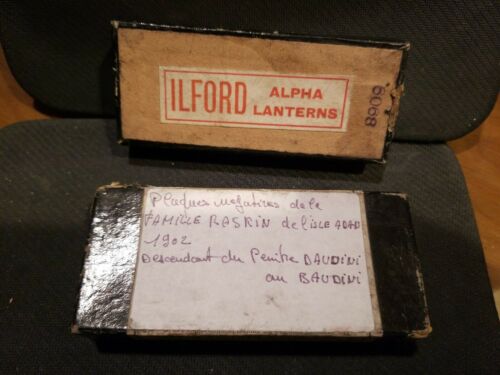 ILFORD ALPHA LANTERNS
8909
Plaques negatives de la
FAMILLE RASKIN de l'ISLE ADAM
1902
Descendant du Peintre DAUDINI
ou BAUDINI